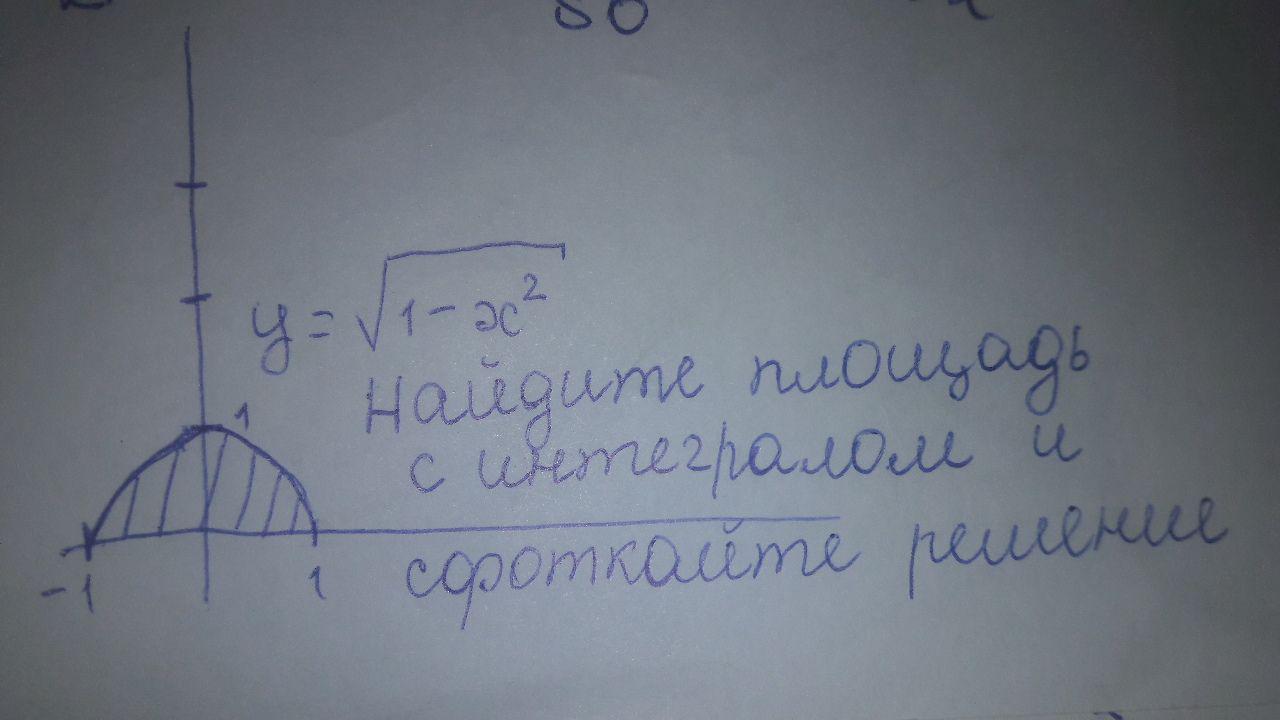 50
y = √(1-x²)
1
Найдите площадь
с интегралом и
сфоткайте решение
-1 1